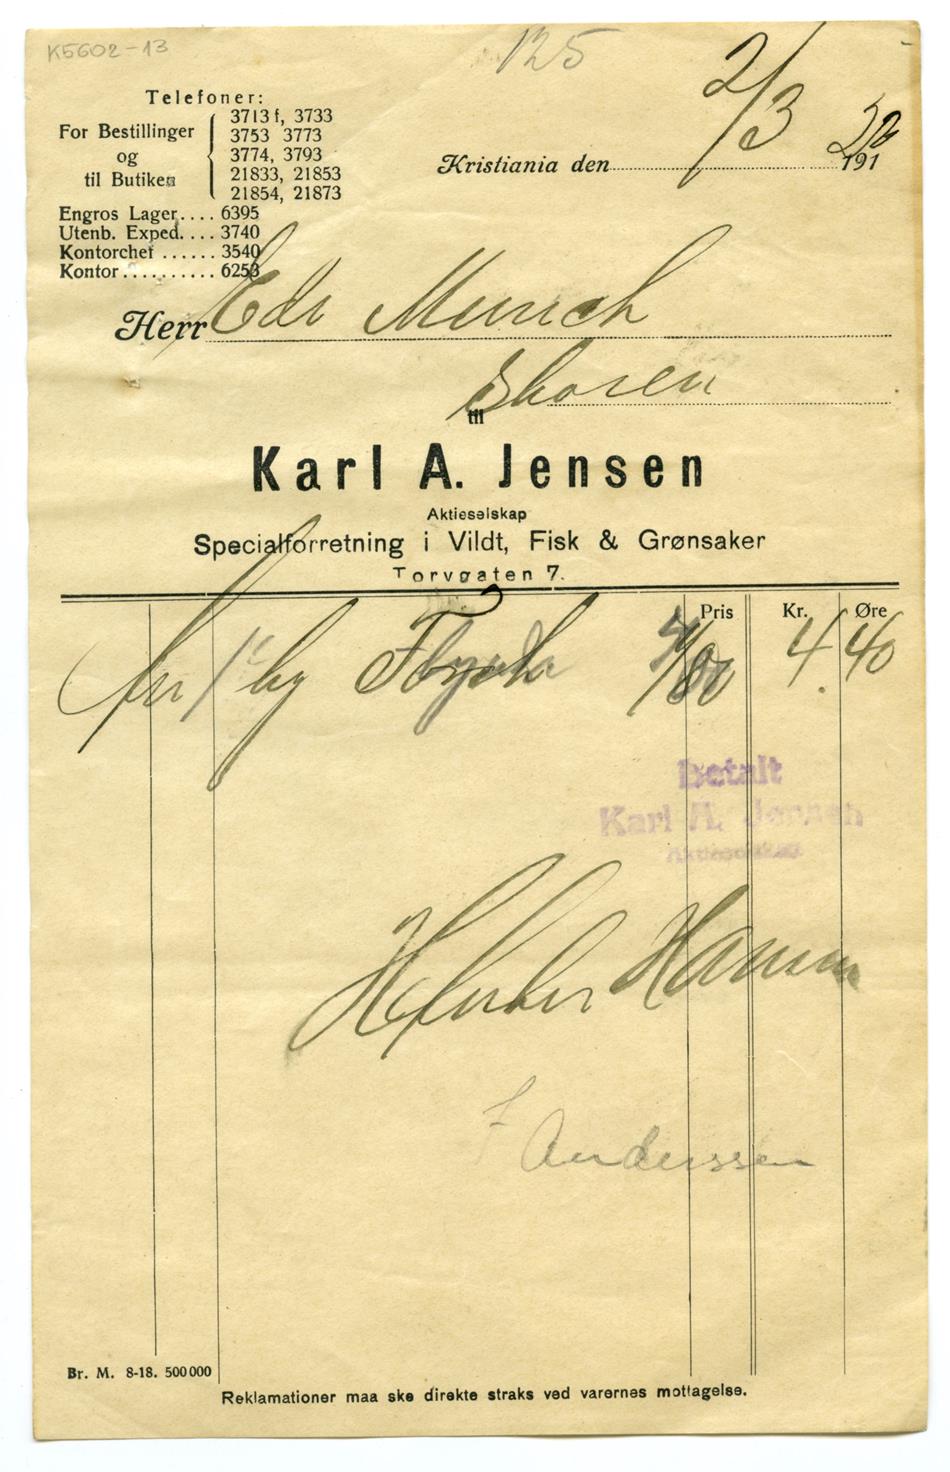 K5602-13
125
2/3 20
Telefoner:
For Bestillinger
og
til Butiken
3713 f, 3733
3753 3773
3774, 3793
21833, 21853
21854, 21873
Kristiania den 191
Engros Lager.... 6395
Utenb. Exped.... 3740
Kontorchef ...... 3540
Kontor.......... 6253
Herr Edv Munch
Skøien
til
Karl A. Jensen
Aktieselskap
Specialforretning i Vildt, Fisk & Grønsaker
Torvgaten 7.
Pris Kr. Øre
1 kg 4. 40
Betalt
Karl A. Jensen
Aktieselskap
Hansen
Anderssen
Br. M. 8-18. 500000
Reklamationer maa ske direkte straks ved varernes mottagelse.